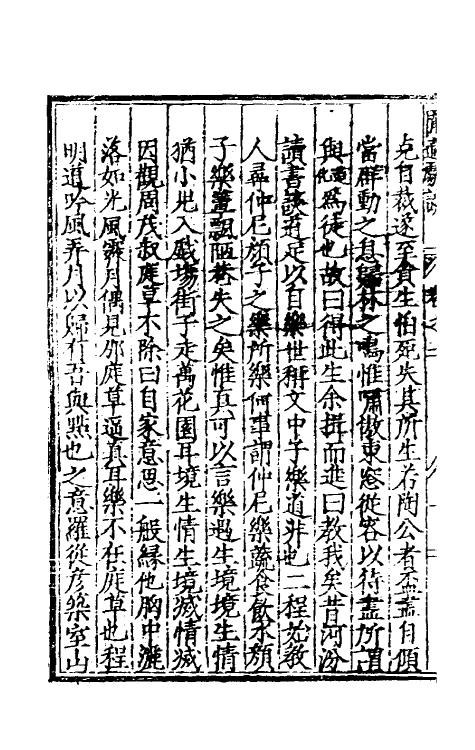 克自裁遂至貪生怕死失其所生若陶公者壺盡自傾
當群動之息歸林之鳴惟嘯傲東窓從容以待盡所謂
與化為徒也故曰得此生余揖而進曰教我矣昔河汾
讀書談道足以自樂世稱文中子樂道非也二程始教
人尋仲尼顔子之樂所樂何事謂仲尼樂蔬食飲水顔
子樂簞瓢陋巷失之矣惟真可以言樂遇生境境生情
猶小児入戯場街子走萬花園耳境生情生境滅情滅
因觀周茂叔庭草不除曰自家意思一般緣他胸中灑
落如光風霽月偶見那庭草適真耳樂不在庭草也程
明道吟風弄月以歸有吾與點也之意羅從彦築室山